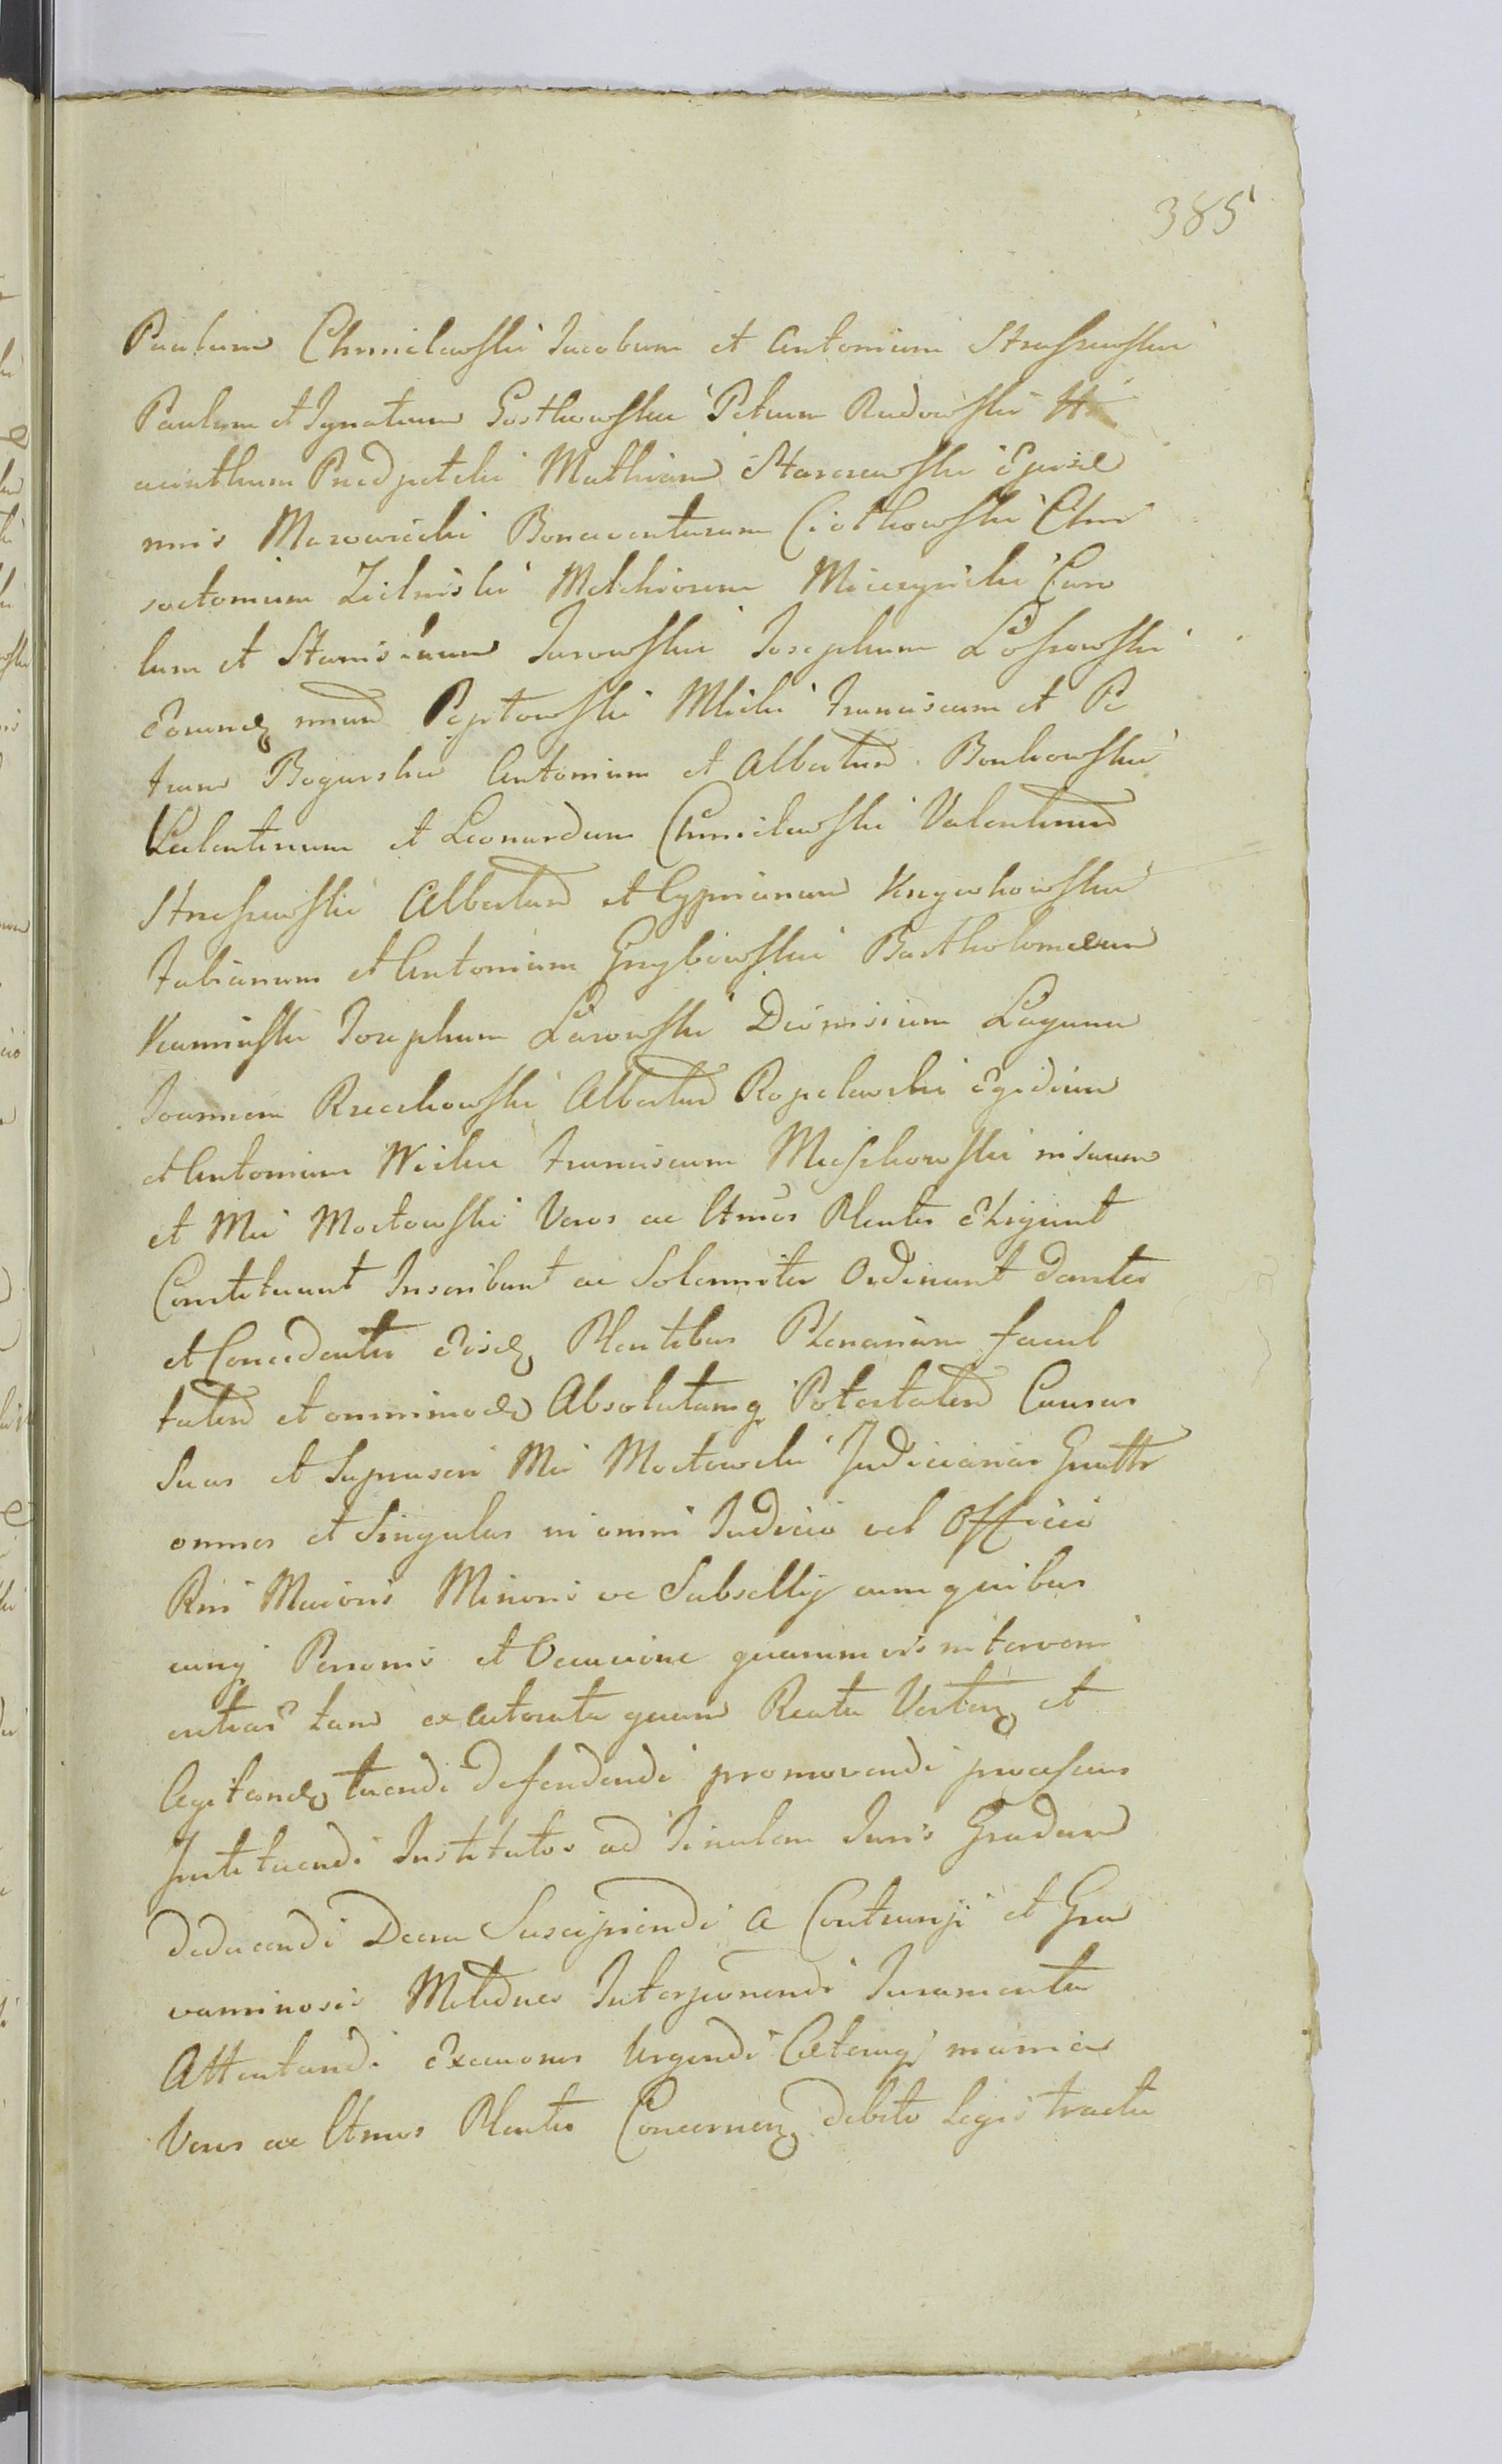 385
Paulum Chmielewski Jacobum et Antonium Straszewski
Paulum et Ignatium Gostkowski Petrum Rudowski Hi
acinthum Mathiam Starczewski
nnis Mazowiecki Bonaventuram Ciotkowski Chri
soctomum Zielinski Melchiorem Miecznicki Caro
lum et Stanislaum Jurowski Josephum Lossowski
Franciscum et Pe
trum Bogurski Antonium et Albertum Bonkowski
Valentinum et Leonardum Chmielewski Valentinum
Straszewski Albertum et Cyprianum Krzywkowski
Fabianum et Antonium Grzybowski Bartholomeum
Kaminski Josephum Lasowski Dionisium Laguna
Joannem Rzeczkowski Albertum Ropelewski Egidium
et Antonium Wilski Franciscum Myszkowski in suum
et Mci Moctowski Veros ac Ltmos Plentes Eligunt
Constituunt Inscribunt ac Solemniter Ordinant dantes
et Concedentes Eisdq Plentibus Plenariam facul
tatem et omnimodo Absolutamq Potestatem Causas
Suas et Mci Moctowski Judiciarias Gnttr
omnes et Singulas in omni Judicio vel Officio
Rni Maioris Minoris ve Subsellij cum quibus
cunq Personis et Occasione quarumvis interveni
entias tam ex Actoratu quam Reatu Verten et
Agitand tuendi defendendi promovendi processus
Instituendi Institutos ad Finalem Juris Gradum
deducendi Decra Suscipiendi a Contrarijs et Gra
vaminosis Interponendi Juramenta
Attentandi Executiones Urgendi Cæteraq munia
Veros ac Ltmos Plentes Concernen debito Legis tractu